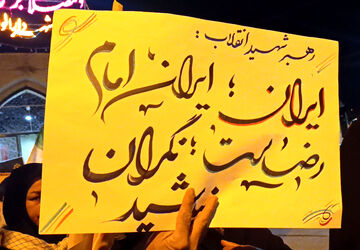 رهبر شهید انقلاب:
ایران ؛ ایران امام
رضاست ؛ نگران
نباشید